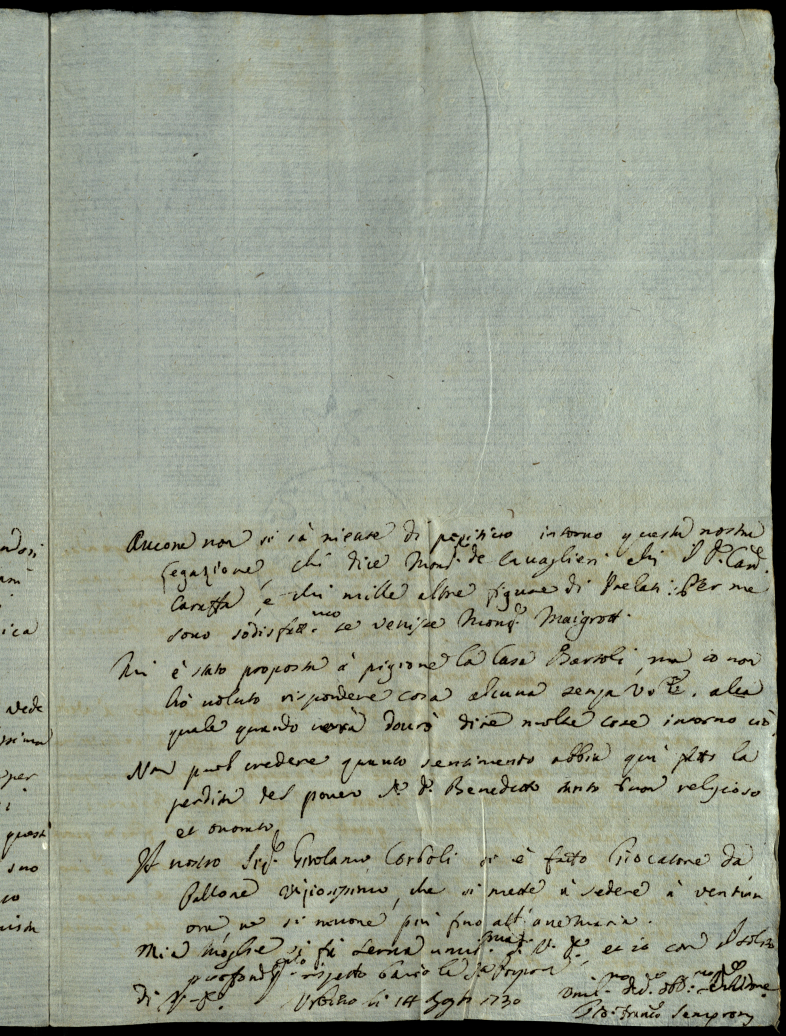 Ancora non si sà niente di positivo intorno questa nostra
Legazione, chi dice Mons. de Cavaglieri chi Card.
Caraffa, e chi mille altre figure di Prelati: Per me
sono sodisfatt.mo se venisse Mons. Maigrott.
Mi è stato proposta à pigione la Casa Bartoli, ma io non
hò voluto rispondere cosa alcuna senza alla
quale quando verrà dourò dire molte cose intorno ciò
Non può credere quanto sentimento abbia qui fatto la
perdita del povero P. D. Benedetto tanto buon religioso
et onorato
Il nostro Sig. Girolamo Corboli si è fatto Giocatore da
Pallone viziosissimo, che si mette à sedere à ventun
ora, ne si muove più fino all'avemaria.
Mia Moglie si fà serva umil.ma di V. E., et io con
profondo rispetto bacio la Sa. Porpora
di V. E. Urbino li 14 1730
Umil.mo dev.mo obb.mo
Gio: Franc.o Semproni
ica
vede
per
questi
suo